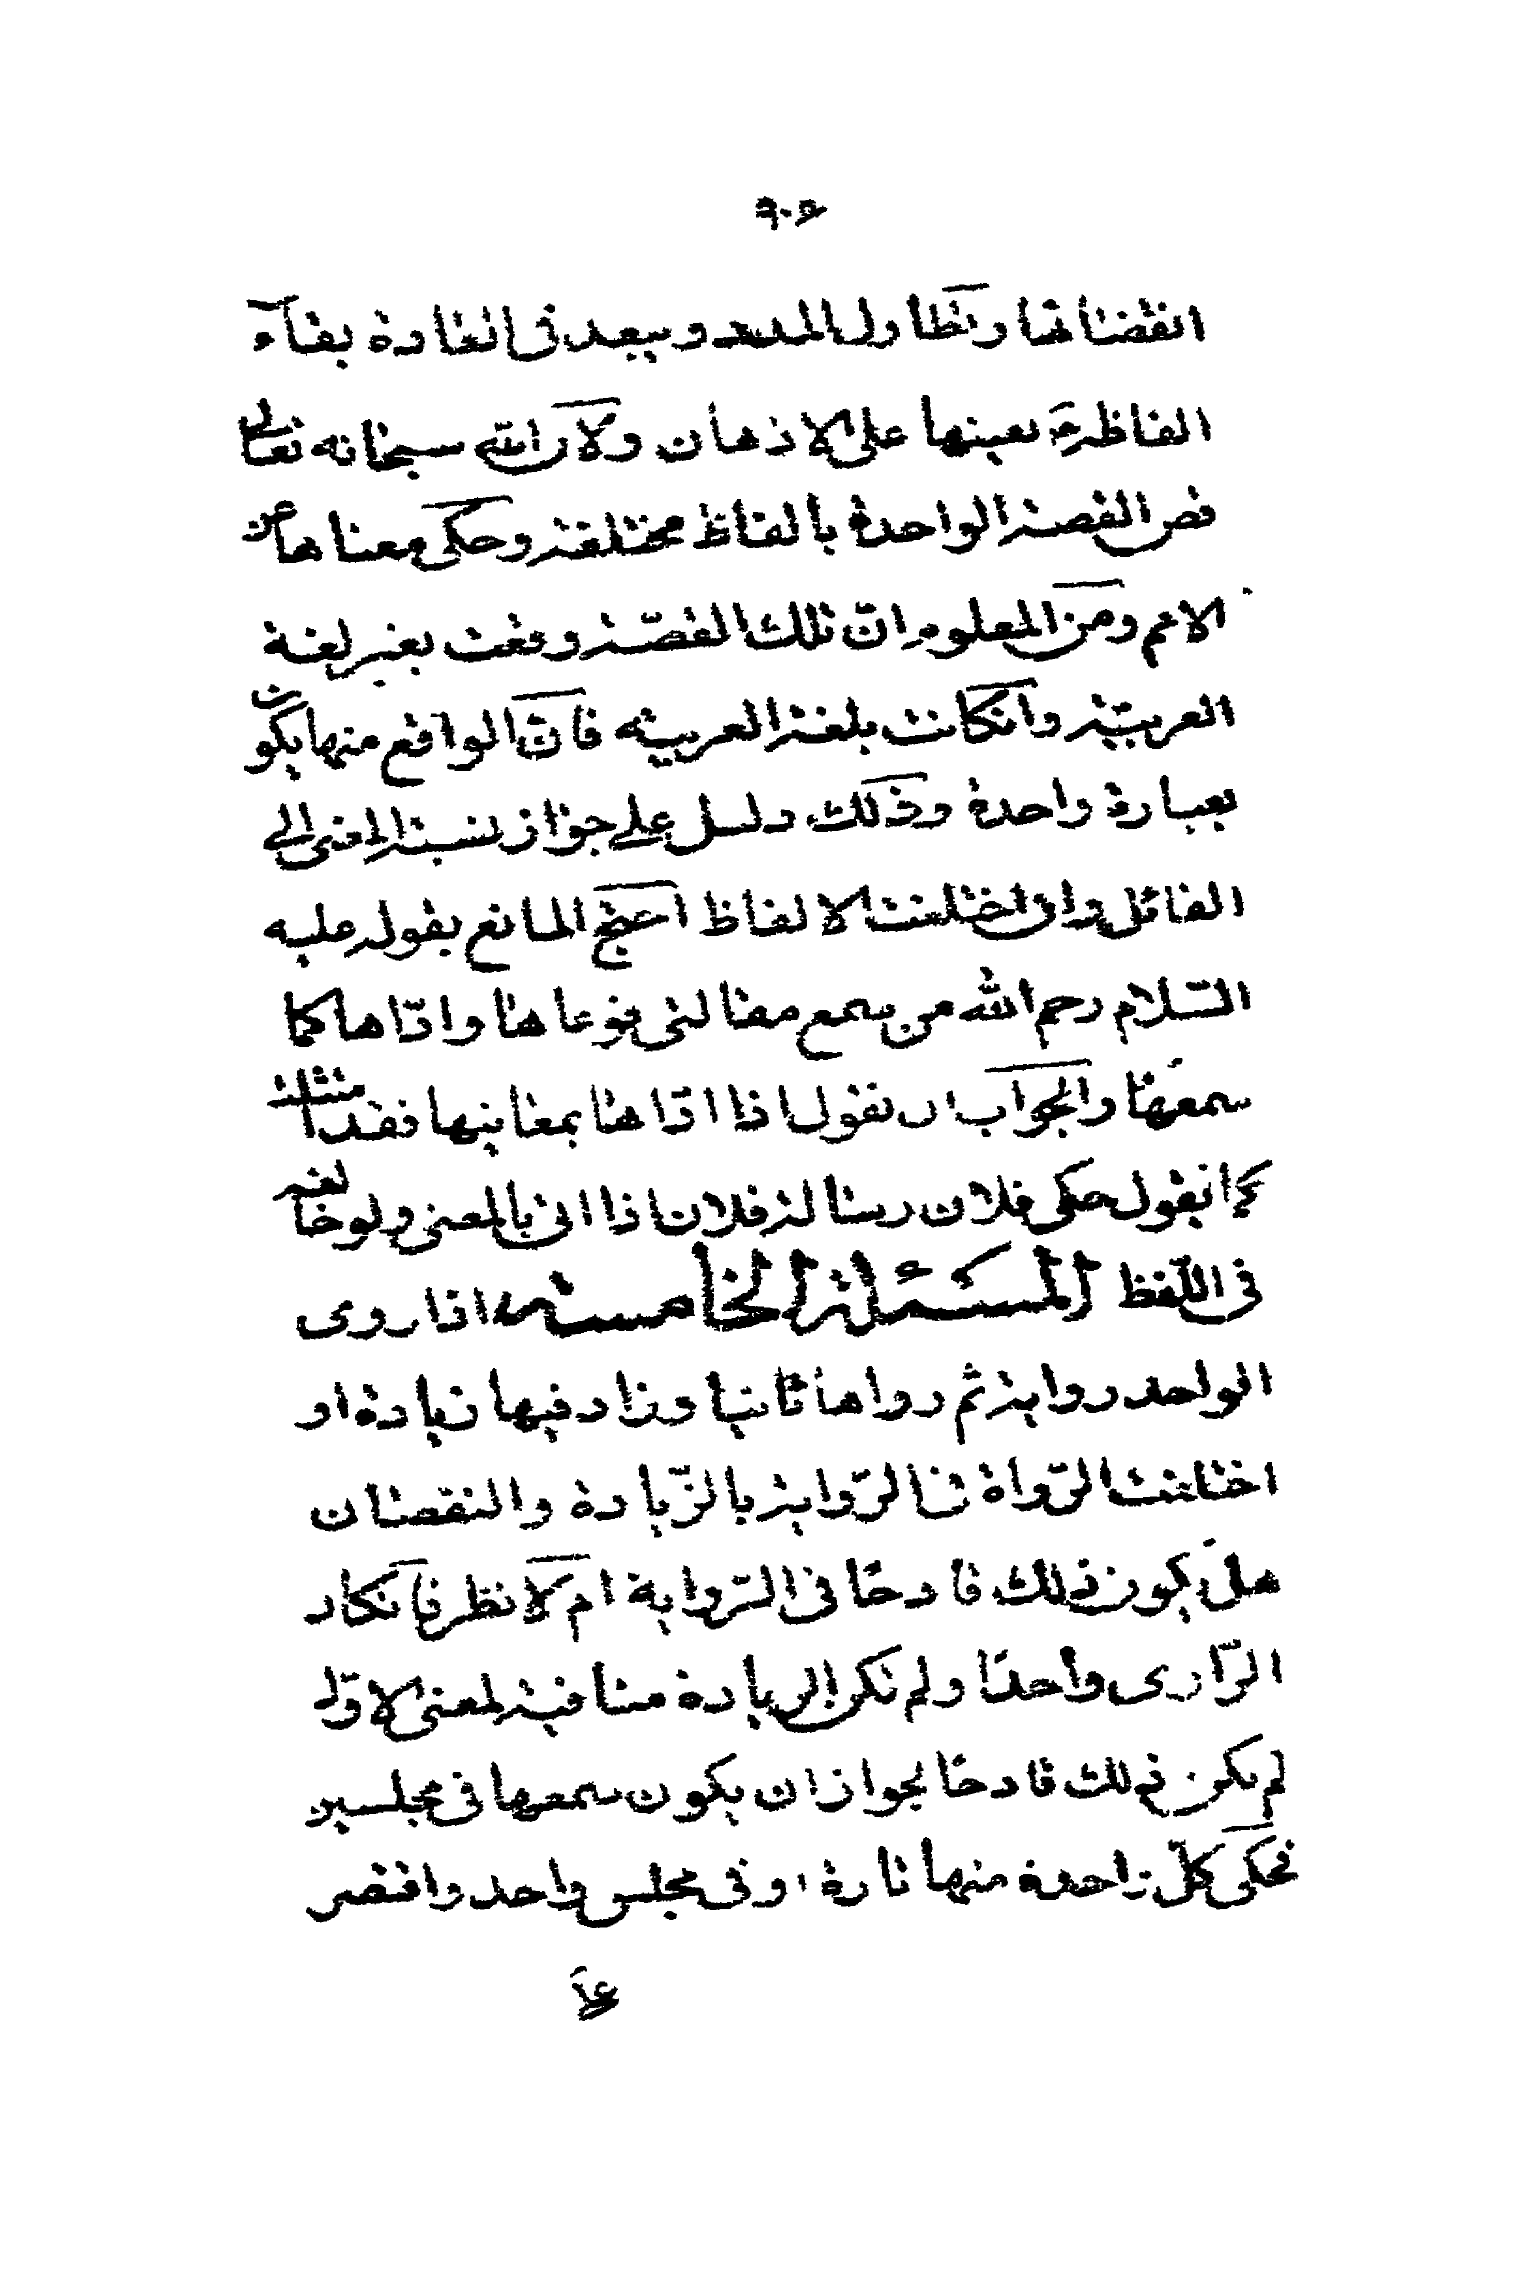 ٢٠۶
انقضائها وتطاول المدد ويبعد فى العادة بقآء
الفاظه بعينها على الاذهان ولان الله سبحانه تعالى
قص القصة الواحدة بالفاظ مختلفة وحكى معناها عن
الامم ومن المعلوم ان تلك القصّة وقعت بغير لغة
العربيّة وان كانت بلغة العربية فان الواقع منها يكون
بعبارة واحدة وذلك دليل على جواز نسبة المعنى الى
القائل وان اختلفت الالفاظ احتج المانع بقوله عليه
السّلام رحم الله من سمع مقالتى فوعاها وادّاها كما
سمعها والجواب ان نقول اذا ادّاها بمعانيها فقد امتثله
كما نقول حكى فلان رسالة فلان اذا اتى بالمعنى ولو خالفه
فى اللّفظ المسئلة الخامسة اذا روى
الواحد رواية ثم رواها ثانيا وزاد فيها زيادة او
اختلفت الرّواة فى الرّواية بالزّيادة والنقصان
هل يكون ذلك قادحا فى الرّواية ام لا نظر فان كان
الرّاوى واحدا ولم تكن الزيادة منافية لمعنى الاوّل
لم يكن ذلك قادحا لجواز ان يكون سمعها فى مجلسين
فحكى كلّ واحدة منها تارة او فى مجلس واحد واقتصر
على